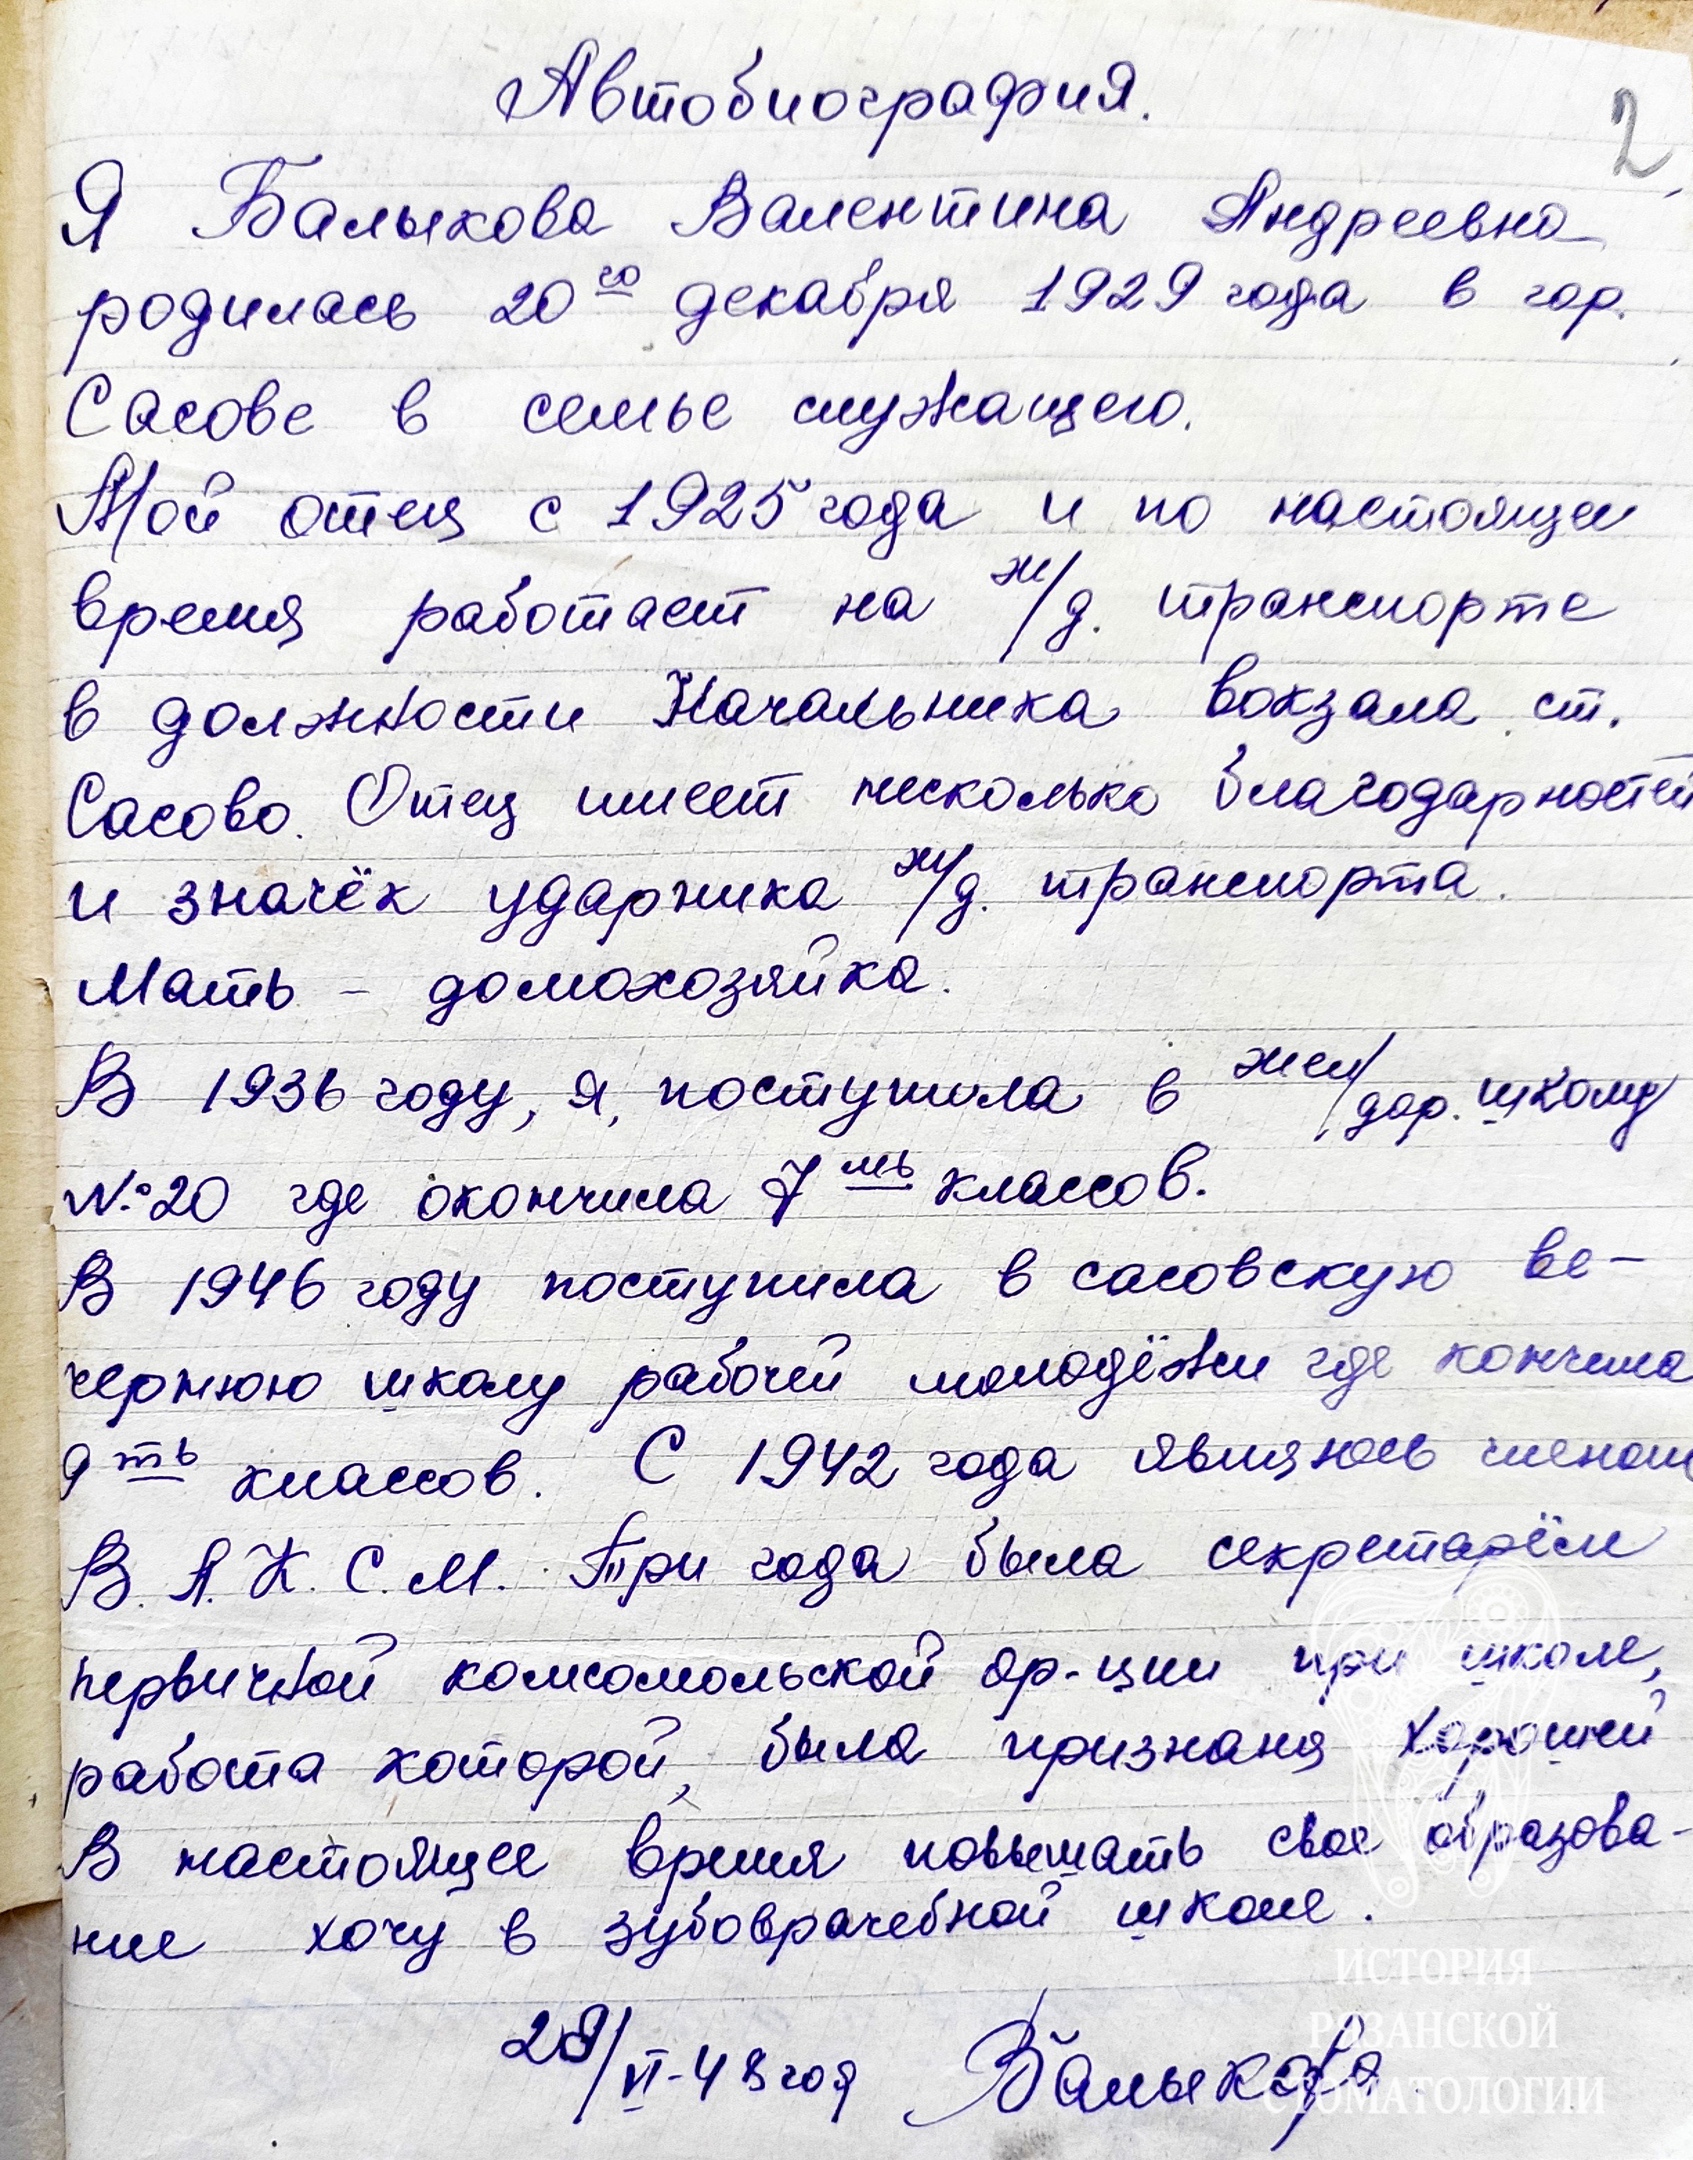 Автобиография.
2
Я Балыкова Валентина Андреевна
родилась 20го декабря 1929 года в гор.
Сасове в семье служащего.
Мой отец с 1925 года и по настоящее
время работает на ж/д. транспорте
в должности Начальника вокзала ст.
Сасово. Отец имеет несколько благодарностей
и значёк ударника ж/д. транспорта.
Мать - домохозяйка.
В 1936 году, я, поступила в жел/дор. школу
№ 20 где окончила 7мь классов.
В 1946 году поступила в сасовскую ве-
чернюю школу рабочей молодёжи где кончила
9ть классов. С 1942 года являюсь членом
В.Л.К.С.М. Три года была секретарём
первичной комсомольской ор-ции при школе,
работа которой, была признана хорошей
В настоящее время повышать свое образова-
ние хочу в зубоврачебной школе.
28/VI-48 год Балыкова
ИСТОРИЯ
РЯЗАНСКОЙ
СТОМАТОЛОГИИ